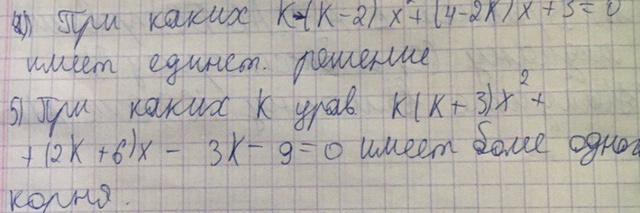 4) При каких К (К-2) x² + (4-2К) x + 3 = 0
имеет единст. решение
5) При каких К урав К(К+3)x² +
+(2К+6)x - 3К - 9 = 0 имеет боле одного
корня.